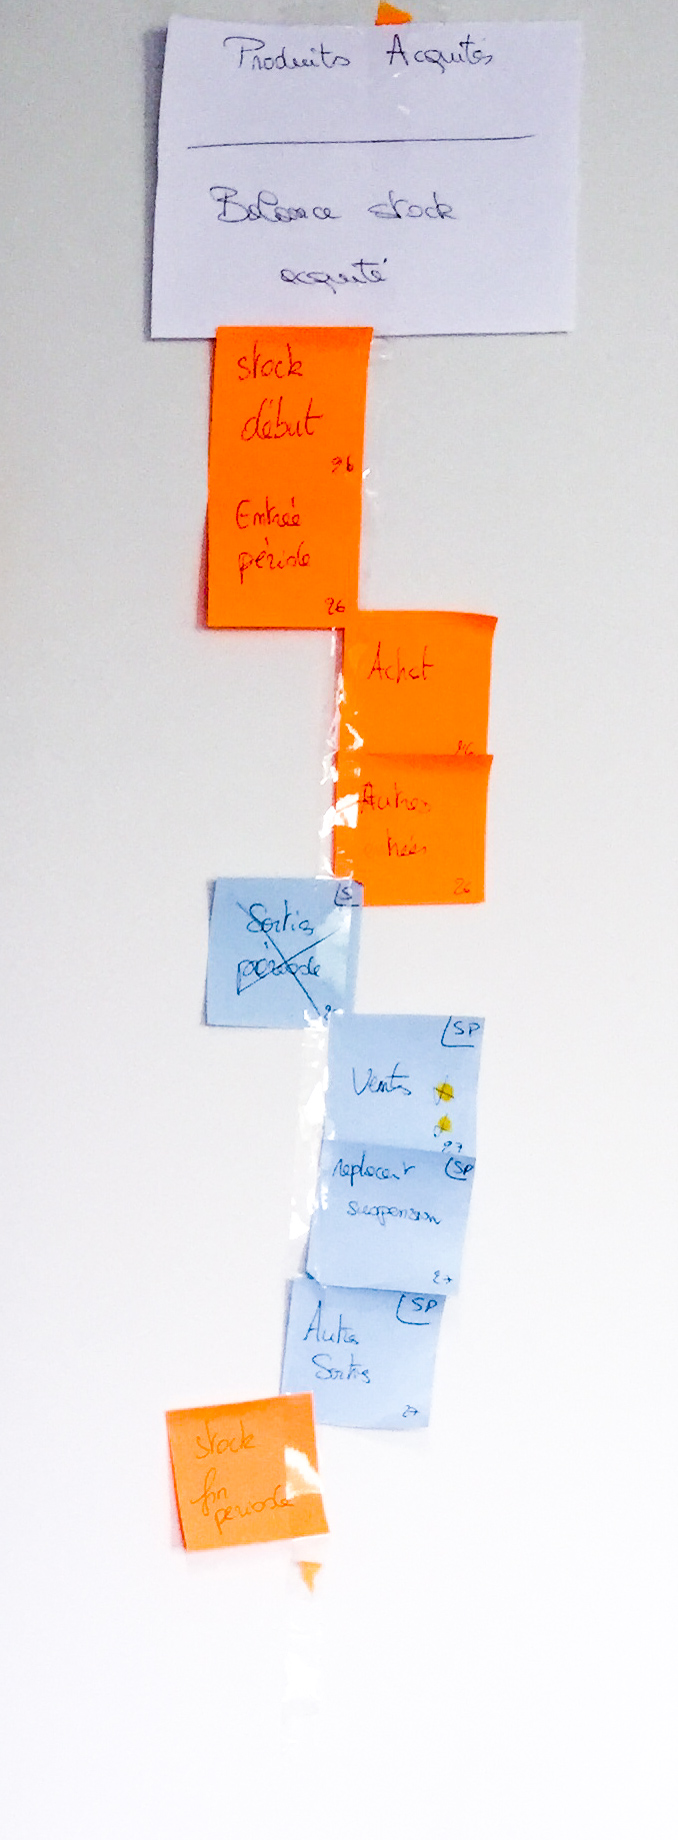 Produits Acquités
Balance stock
acquité
stock
début
26
Entrée
période
26
Achat
26
Autres
26
S
Sorties
période
SP
Ventes
27
replacent
SP
suspension
27
SP
Autres
Sorties
27
stock
fin
période